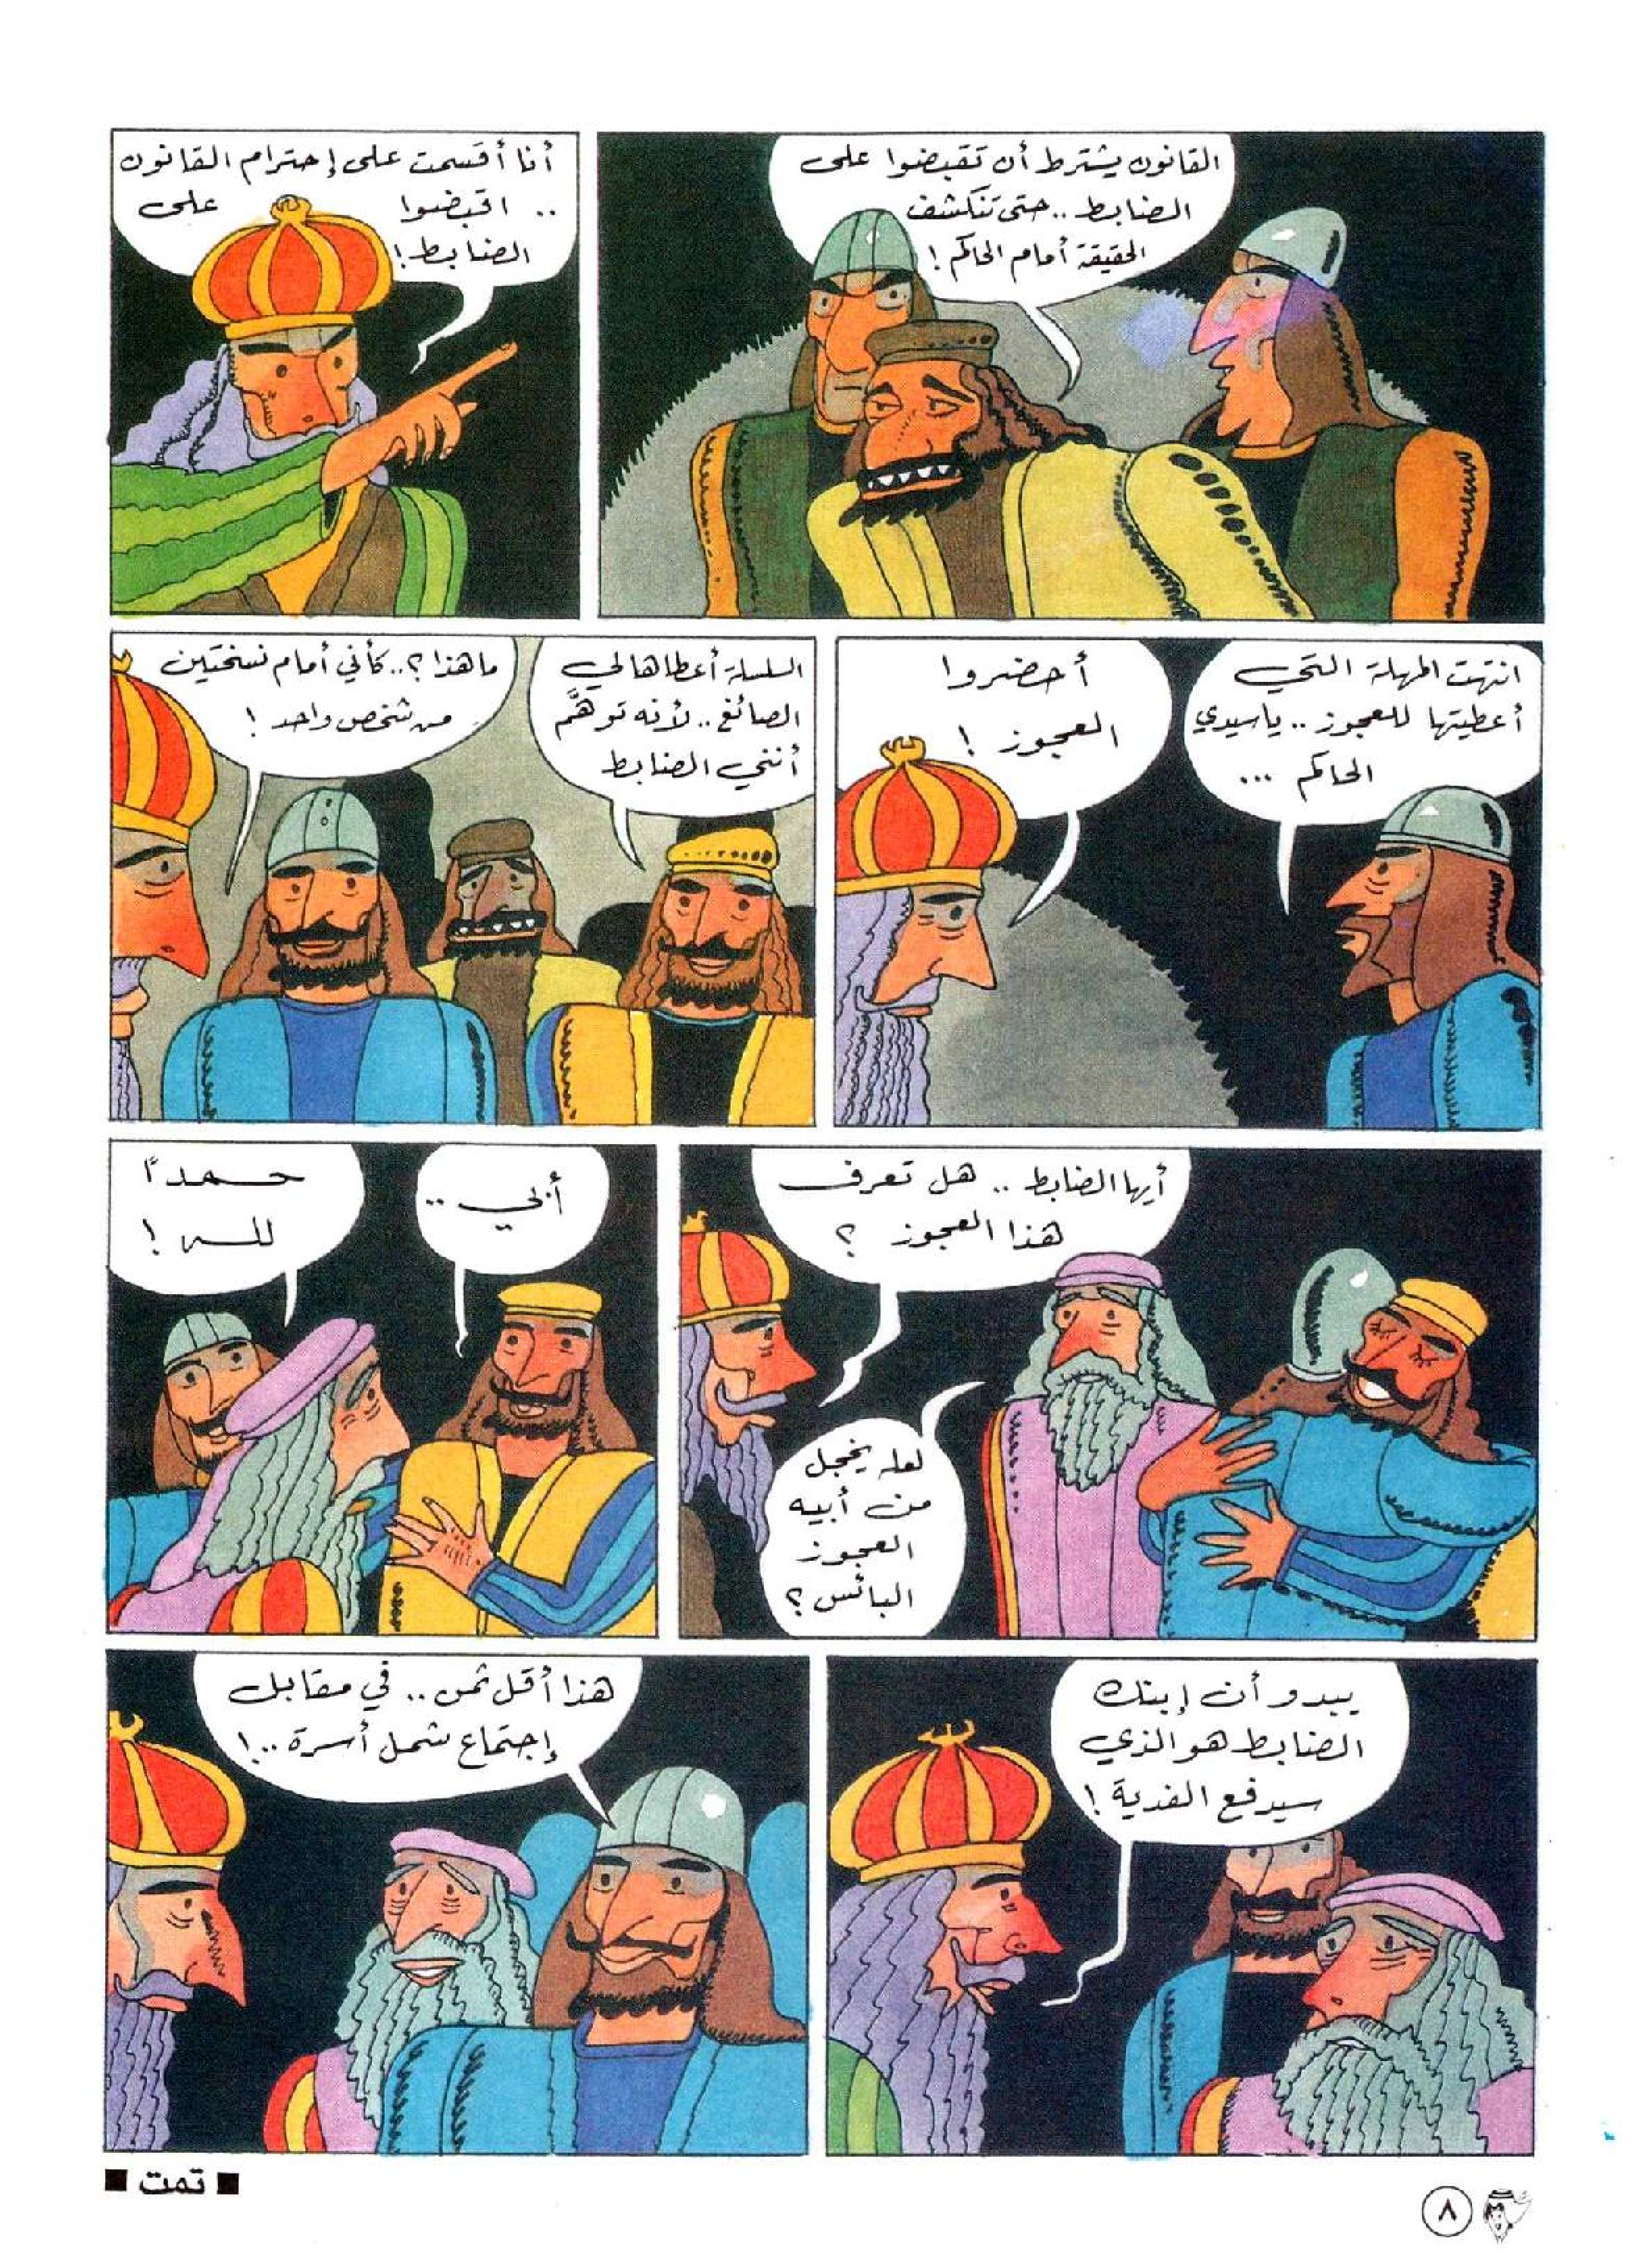 القانون يشترط أن تقبضوا على
الضابط .. حتى تنكشف
الحقيقة أمام الحاكم !
أنا أقسمت على إحترام القانون
.. اقبضوا على
الضابط !
انتهت المهلة التي
أعطيتها للعجوز .. ياسيدي
الحاكم ...
أحضروا
العجوز !
السلسلة أعطاها لي
الصائغ .. لأنه توهَّم
أنني الضابط
ما هذا ؟ .. كأني أمام نسختين
من شخص واحد !
أيها الضابط .. هل تعرف
هذا العجوز ؟
لعله يخجل
من أبيه
العجوز
البائس ؟
أبي ..
حمداً
لله !
يبدو أن إبنك
الضابط هو الذي
سيدفع الفدية !
هذا أقل ثمن .. في مقابل
إجتماع شمل أسرة .. !
■ تمت ■
٨